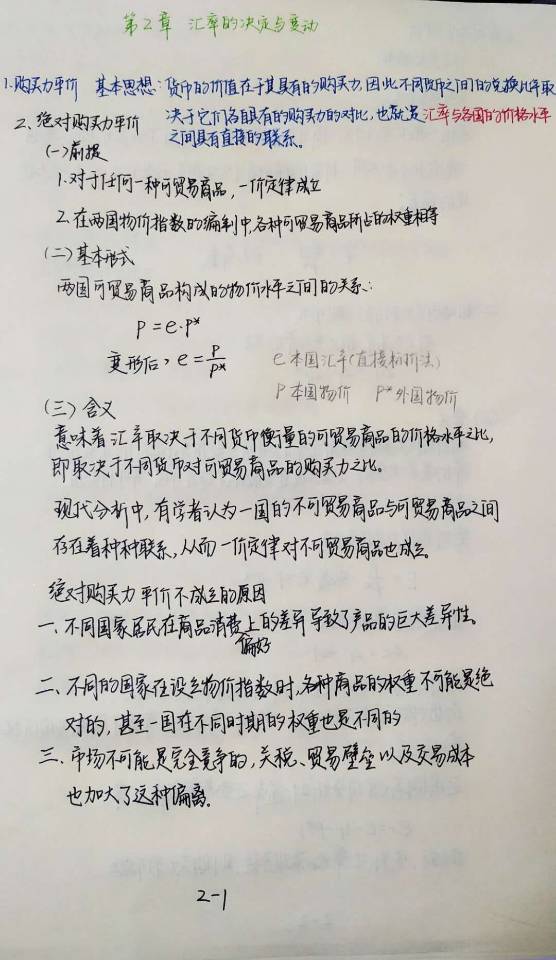 第2章 汇率的决定与变动
1.购买力平价 基本思想:货币的价值在于其具有的购买力,因此不同货币之间的兑换比率取
决于它们各自具有的购买力的对比,也就是汇率与各国的价格水平
之间具有直接的联系。
2、绝对购买力平价
(一)前提
1.对于任何一种可贸易商品,一价定律成立
2.在两国物价指数的编制中,各种可贸易商品所占的权重相等
(二)基本形式
两国可贸易商品构成的物价水平之间的关系:
P=e·P*
变形后, e=P/P* e本国汇率(直接标价法)
P本国物价 P*外国物价
(三)含义
意味着汇率取决于不同货币衡量的可贸易商品的价格水平之比,
即取决于不同货币对可贸易商品的购买力之比。
现代分析中,有学者认为一国的不可贸易商品与可贸易商品之间
存在着种种联系,从而一价定律对不可贸易商品也成立。
绝对购买力平价不成立的原因
一、不同国家居民在商品消费上的差异导致了产品的巨大差异性。
偏好
二、不同的国家在设立物价指数时,各种商品的权重不可能是绝
对的,甚至一国在不同时期的权重也是不同的
三、市场不可能是完全竞争的,关税、贸易壁垒以及交易成本
也加大了这种偏离。
2-1